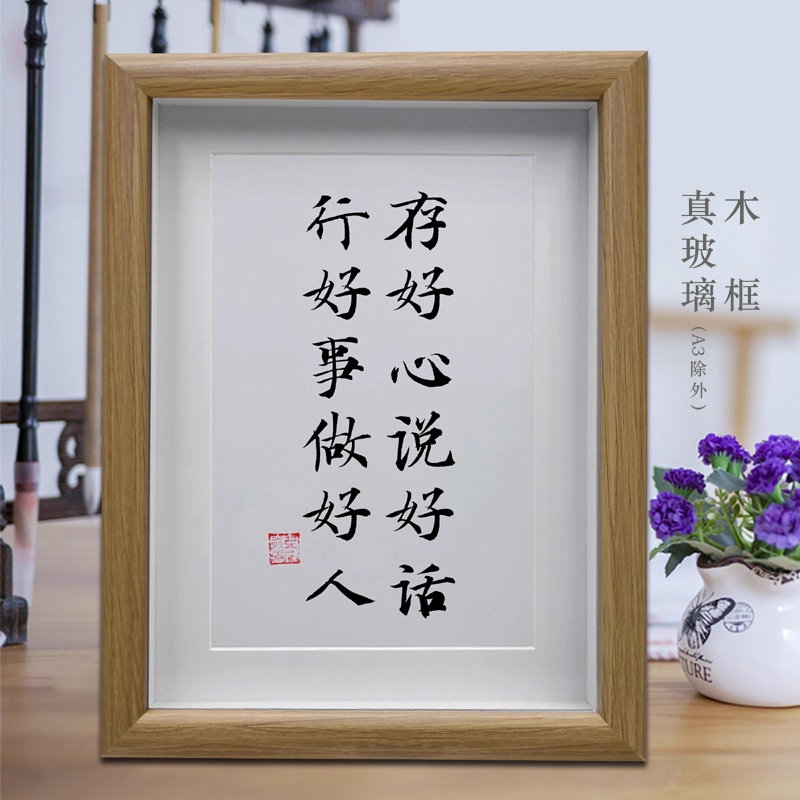 存好心说好话
行好事做好人
木框
真玻璃
(A3除外)